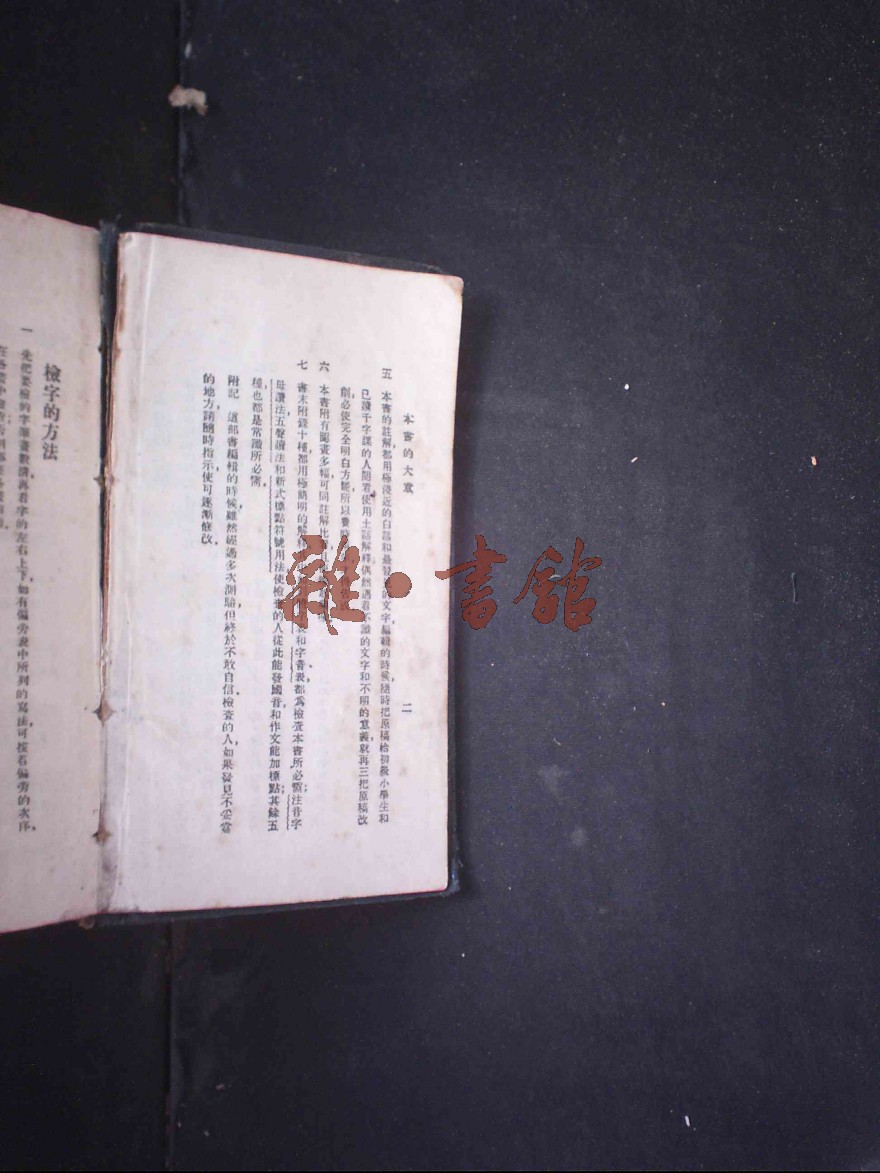 本書的大意
二
五 本書的註解都用極淺近的白話和最 的文字編輯的時候隨時把原稿給初級小學生和
已讀千字課的人閱看使用土話解釋偶然遇着不識的文字和不明的意義就再三把原稿改
創必使完全明白方能所以費時
六 本書附有圖畫多幅可同註解比
七 書末附錄十種都用極簡明的解釋 表和字音表都爲檢查本書所必需注音字
母讀法五聲讀法和新式標點符號用法使檢查的人從此能發國音和作文能加標點其餘五
種也都是常識所必需
附記 這部書編輯的時候雖然經過多次測驗但終於不敢自信檢查的人如果發見不妥當
的地方請隨時指示使可逐漸修改
檢字的方法
一 先把要檢的字 畫數淸再看字的左右上下如有偏旁表中所列的寫法可按着偏旁的次序
雜·書館